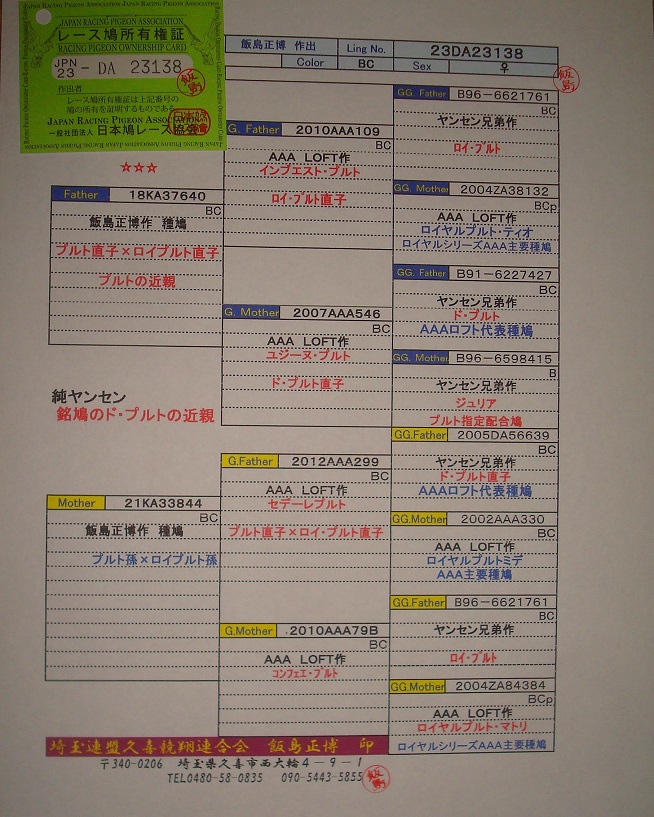 JAPAN RACING PIGEON ASSOCIATION
レース鳩所有権証
RACING PIGEON OWNERSHIP CARD
JPN
23 - DA 23138
作出者
レース鳩所有権証は上記番号の
鳩の所有を証明するものである
JAPAN RACING PIGEON ASSOCIATION
一般社団法人 日本鳩レース協会
飯島正博 作出 Ling No. 23DA23138
Color BC Sex ♀
☆☆☆
Father 18KA37640
BC
飯島正博作 種鳩
プルト直子×ロイプルト直子
プルトの近親
純ヤンセン
銘鳩のド・プルトの近親
Mother 21KA33844
BC
飯島正博作 種鳩
プルト孫×ロイプルト孫
G. Father 2010AAA109
BC
AAA LOFT作
インブエスト・プルト
ロイ・プルト直子
G. Mother 2007AAA546
BC
AAA LOFT作
ユジーヌ・プルト
ド・プルト直子
G.Father 2012AAA299
BC
AAA LOFT作
セデーレプルト
プルト直子×ロイ・プルト直子
G.Mother 2010AAA79B
BC
AAA LOFT作
コンフェエ・プルト
GG. Father B96-6621761
BC
ヤンセン兄弟作
ロイ・プルト
GG. Mother 2004ZA38132
BCp
AAA LOFT作
ロイヤルプルト・ティオ
ロイヤルシリーズAAA主要種鳩
GG. Father B91-6227427
BC
ヤンセン兄弟作
ド・プルト
AAAロフト代表種鳩
GG. Mother B96-6598415
B
ヤンセン兄弟作
ジュリア
プルト指定配合鳩
GG.Father 2005DA56639
BC
ヤンセン兄弟作
ド・プルト直子
AAAロフト代表種鳩
GG.Mother 2002AAA330
BC
AAA LOFT作
ロイヤルプルトミデ
AAA主要種鳩
GG.Father B96-6621761
BC
ヤンセン兄弟作
ロイ・プルト
GG.Mother 2004ZA84384
BCp
AAA LOFT作
ロイヤルプルト・マトリ
ロイヤルシリーズAAA主要種鳩
埼玉連盟久喜競翔連合会 飯島正博 印
〒340-0206 埼玉県久喜市西大輪4-9-1
TEL0480-58-0835 090-5443-5855